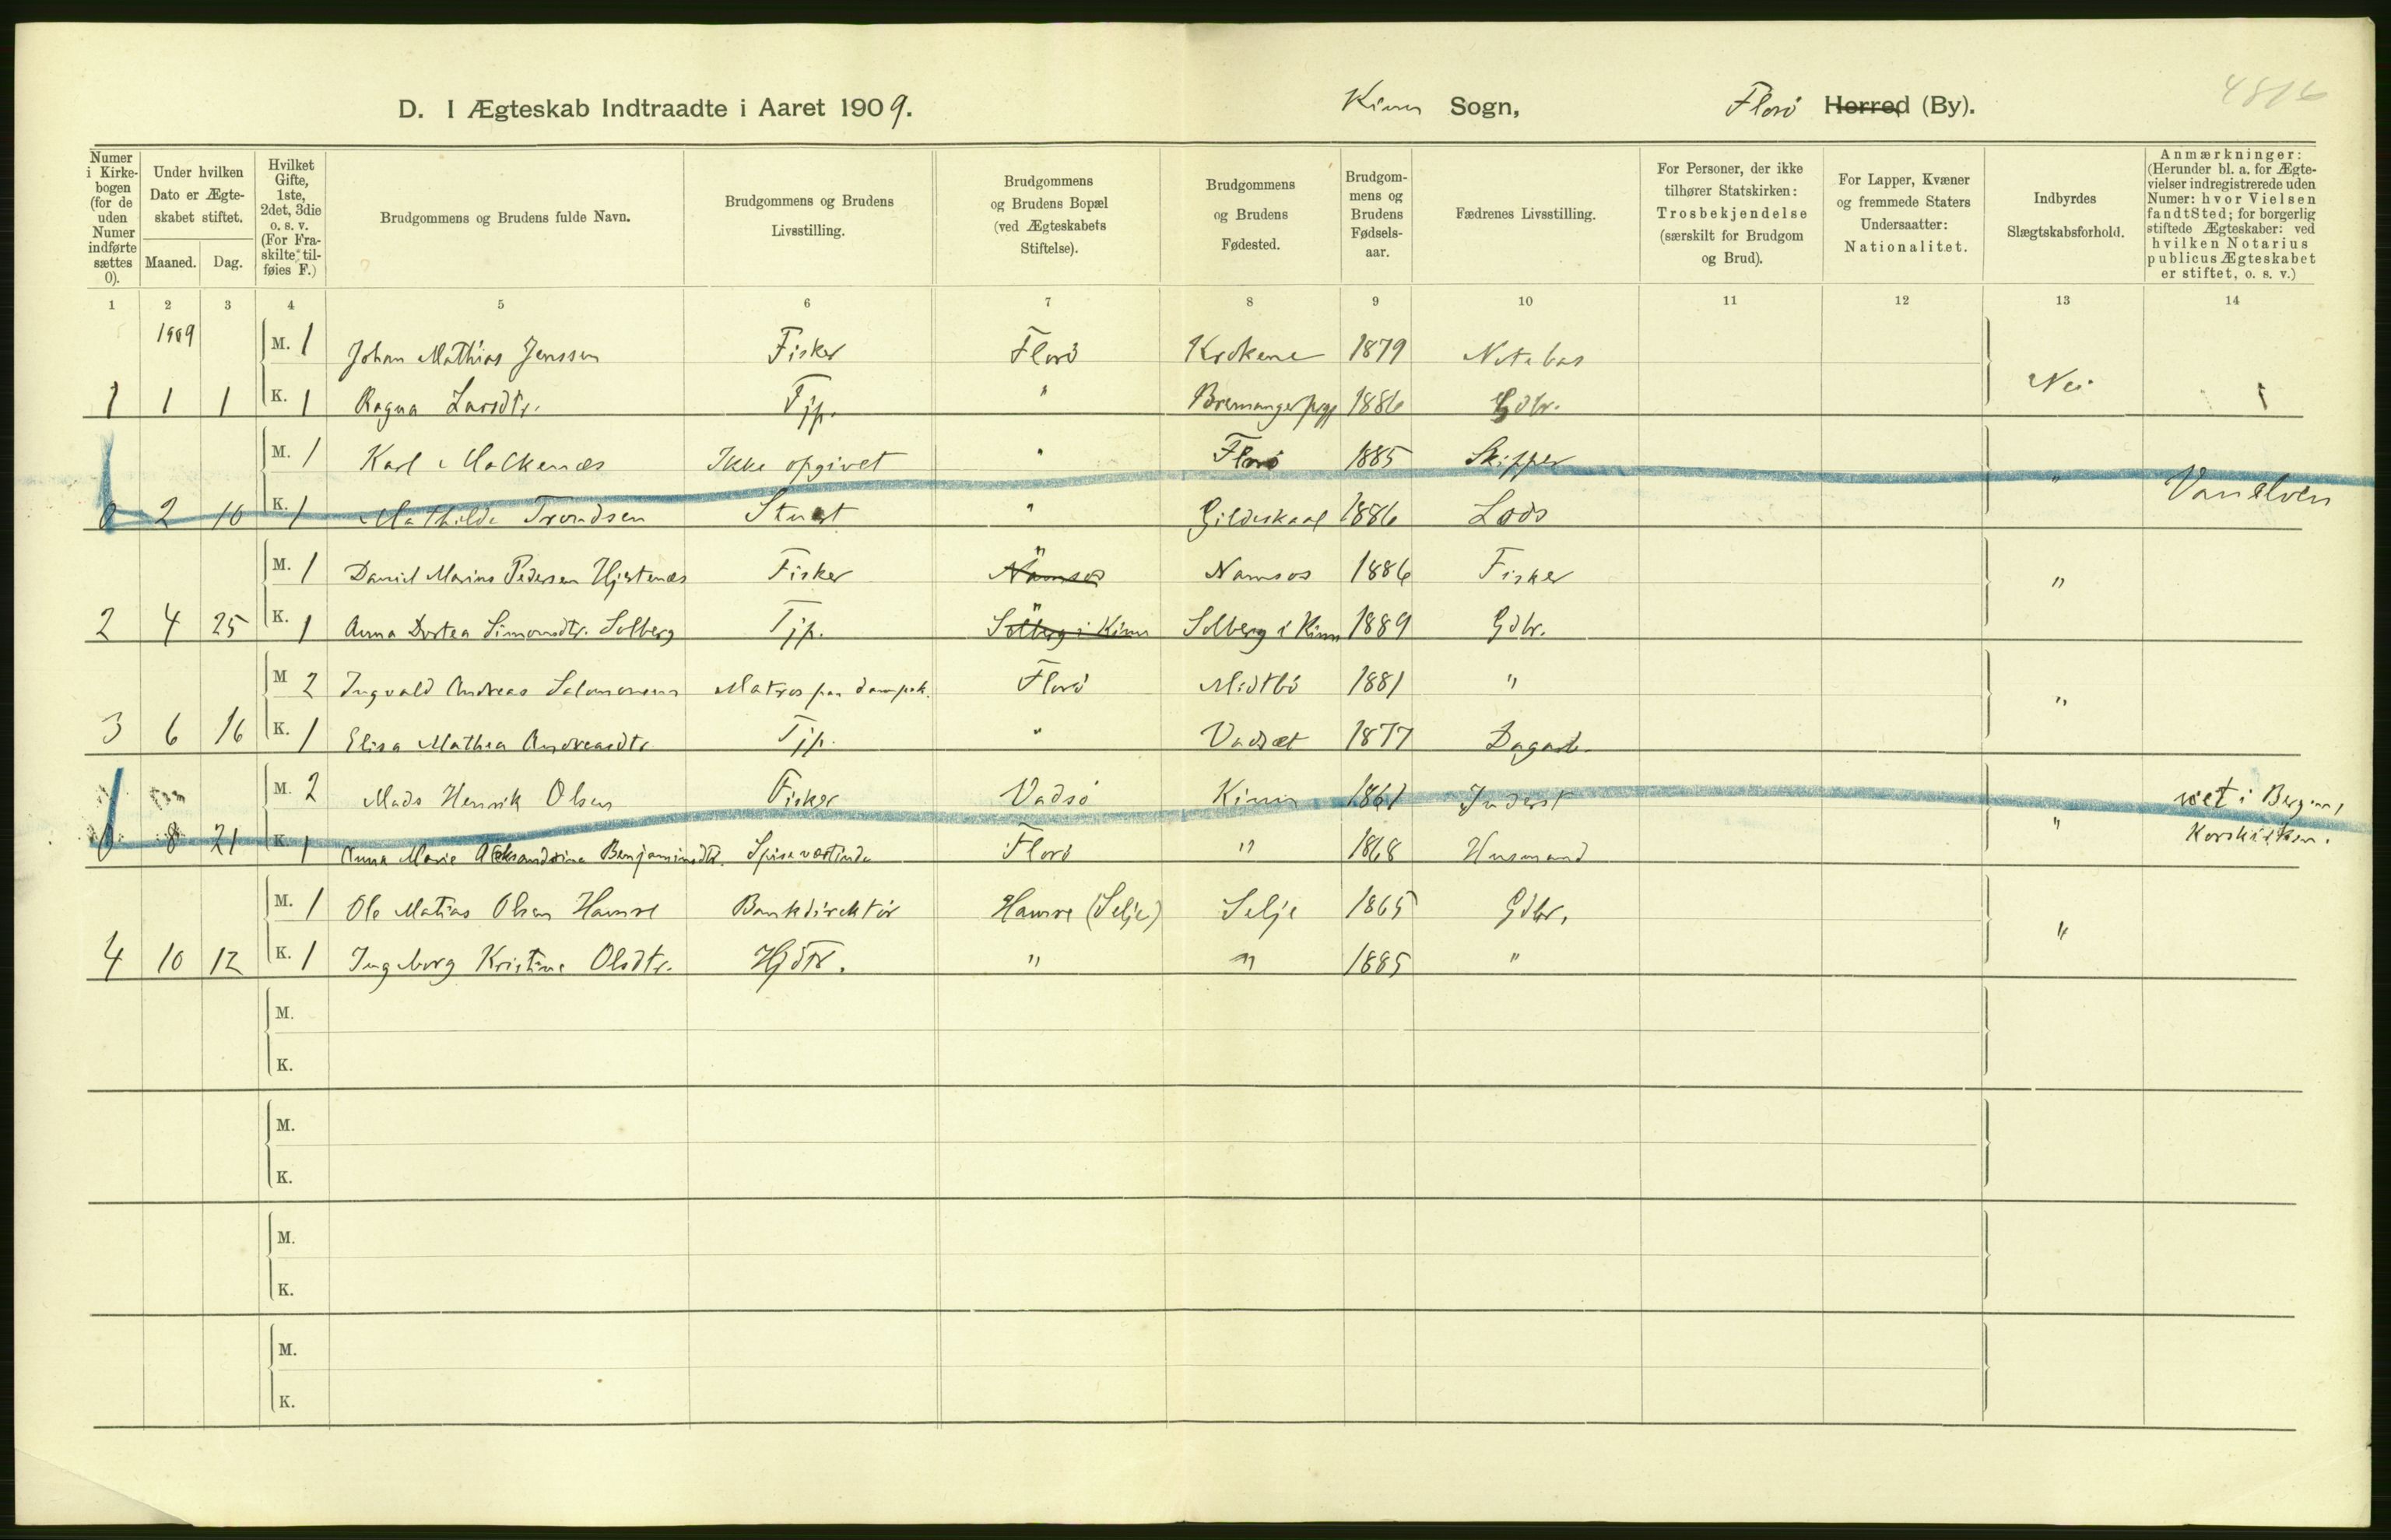 4816
D. I Ægteskab Indtraadte i Aaret 1909. Kinn Sogn, Florö Herred (By).
Numer i Kirkebogen (for de uden Numer indførte sættes 0).
Under hvilken Dato er Ægteskabet stiftet.
Maaned. Dag.
Hvilket Gifte, 1ste, 2det, 3die o. s. v. (For Fraskilte tilføies F.)
Brudgommens og Brudens fulde Navn.
Brudgommens og Brudens Livsstilling.
Brudgommens og Brudens Bopæl (ved Ægteskabets Stiftelse).
Brudgommens og Brudens Fødested.
Brudgommens og Brudens Fødselsaar.
Fædrenes Livsstilling.
For Personer, der ikke tilhører Statskirken: Trosbekjendelse (særskilt for Brudgom og Brud).
For Lapper, Kvæner og fremmede Staters Undersaatter: Nationalitet.
Indbyrdes Slægtskabsforhold.
Anmærkninger: (Herunder bl. a. for Ægtevielser indregistrerede uden Numer: hvor Vielsen fandt Sted; for borgerlig stiftede Ægteskaber: ved hvilken Notarius publicus Ægteskabet er stiftet, o. s. v.)
1 2 3 4 5 6 7 8 9 10 11 12 13 14
1909 M. 1 Johan Mathias Jenssen Fisker Florö Krokene 1879 Notebas
1 1 1 K. 1 Ragna Larsdtr. Tjp. " Bremanger prgj 1886 Gdbr. Nei 1
M. 1 Karl Malkenæs Ikke opgivet " Florö 1885 Skipper
0 2 10 K. 1 Mathilde Trondsen Stuert " Gildeskaal 1886 Lods " Vanelven
M. 1 Daniel Marius Pedersen Hjertenæs Fisker Namsos Namsos 1886 Fisker "
2 4 25 K. 1 Anna Dortea Simonsdtr. Solberg Tjp. Solberg i Kinn Solberg i Kinn 1889 Gdbr.
M 2 Ingvald Andreas Salomonsen Matros paa dampsk. Florö Midtbö 1881 "
3 6 16 K. 1 Elisa Mathea Andreasdtr. Tjp. " Vadset 1877 Dagarb. "
M. 2 Mads Henrik Olsen Fisker Vadsö Kinn 1861 Inderst viet i Bergen,
0 8 21 K. 1 Anna Marie Aleksandrine Benjaminsdtr. Spisevertinde Florö " 1868 Husmand " Korskirken.
M. 1 Ole Matias Olsen Hamre Bankdirektör Hamre (Selje) Selje 1865 Gdbr.
4 10 12 K. 1 Ingeborg Kristine Olsdtr. Hjdtr. " " 1885 " "
M.
K.
M.
K.
M.
K.
M.
K.